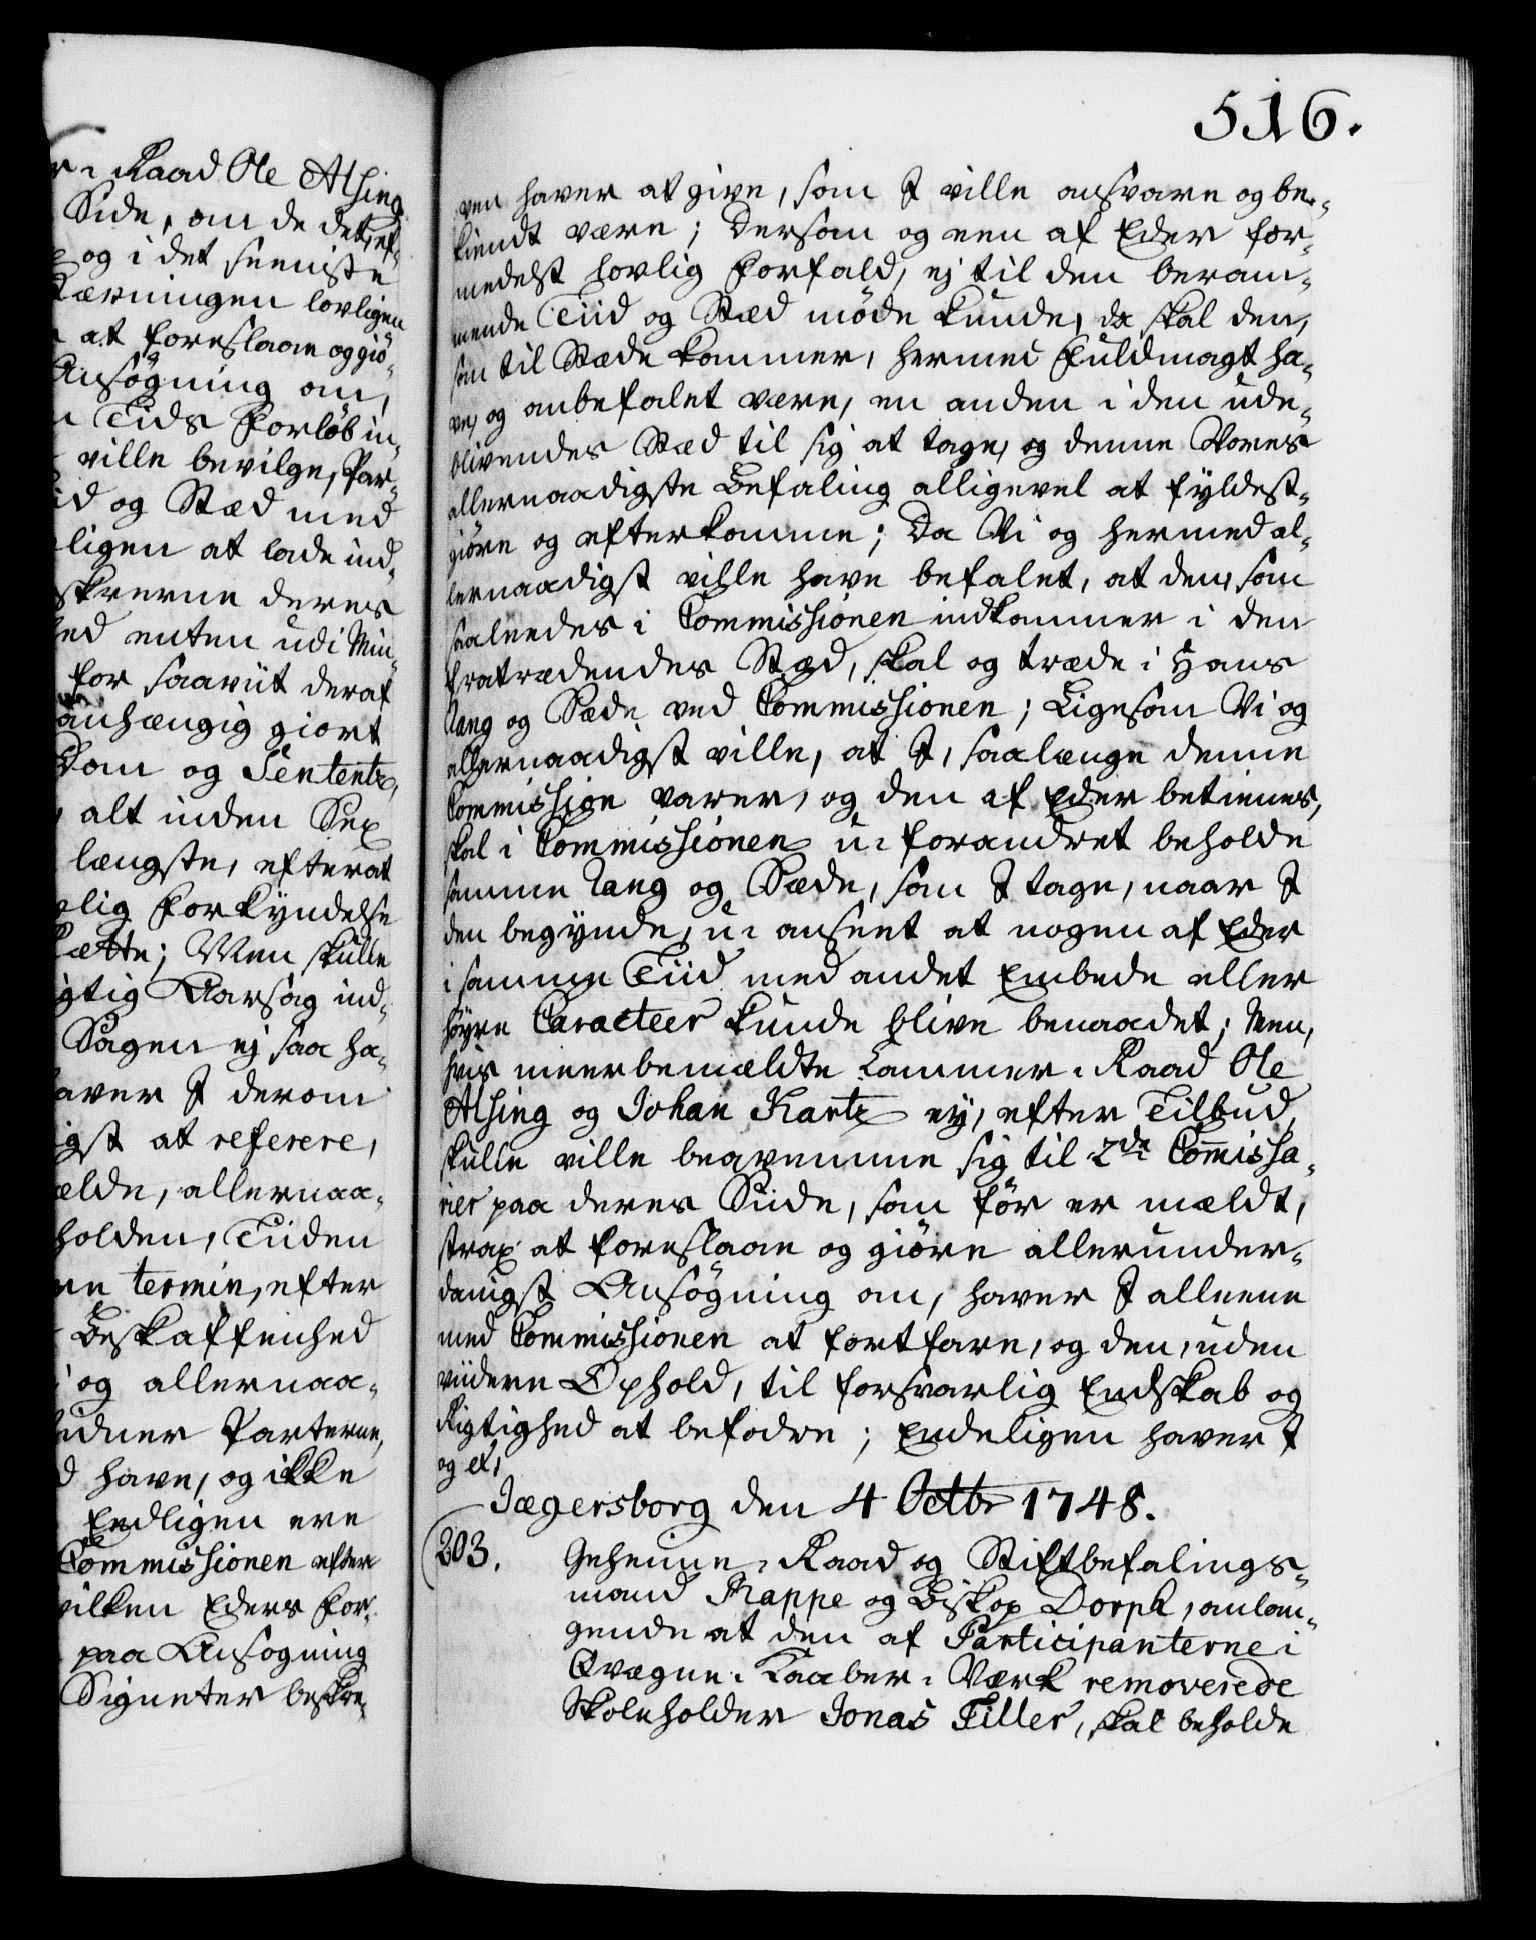 r⸗Raad Ole Alsing
Side, om de det, ef⸗
og i det seeniste
Kærningen lovligen
at foreslaae og giö⸗
Ansøgning om,
Tids Forløb in⸗
ville bevilge, Par⸗
id og Stæd med
ligen at lade ind⸗
skrerne deres
hed enten udi Min⸗
for saaviit deraf
anhængig giort
Dom og Sententz,
alt inden Sex
længste, efterat
lig Forkyndelse
Rette; Men skulle
gtig Aarsag ind⸗
Sagen ej saa ha⸗
aver I derom
igst at referere,
elde, allernaa⸗
holden, Tiiden
re termin, efter
Beskaffenhed
og allernaa⸗
Parterne,
d have, og ikke
Endligen ere
Commissionen efter
vilken Eders for⸗
paa Ansøgning
Signeter beskre⸗
516.
ven haver at give, som I ville ansvare og be⸗
kiendt være; Dersom og een af Eder for⸗
medelst lovlig Forfald, ej til den beram⸗
mende Tiid og Stæd møde kunde, da skal den,
som til Stæde kommer, hermed Fuldmagt ha⸗
ve, og anbefalet være, en anden i den ude⸗
blivendes Stæd til sig at tage, og denne Vores
allernaadigste Befaling alligevel at fyldest⸗
giøre og efterkomme; Da Vi og hermed al⸗
lernaadigst ville have befalet, at den, som
saaleedes i Commissionen indkommer i den
fratrædendes Stæd, skal og træde i Hans
Rang og Sæde ved Commissionen; Ligesom Vi og
allernaadigst ville, at I, saalænge denne
Commission varer, og den af Eder betienes,
skal i Commissionen u⸗forandret beholde
samme Rang og Sæde, som I tage, naar I
den begynde, u⸗anseet at nogen af Eder
i samme Tiid med andet Embede eller
høyre Caracteer kunde blive benaadet; Men,
hvis meerbemældte Cammer⸗Raad Ole
Alsing og Johan Hartz ey, efter Tilbud,
skulle ville beqvemme sig til 2de Commissa⸗
rier paa deres Siide, som før er mældt,
strax at foreslaae og giøre allerunder⸗
danigst Ansøgning om, haver I alleene
med Commissionen at fortfare, og den, uden
viidere Ophold, til forsvarlig Endskab og
Rigtighed at befodre; Endeligen haver I
og et,
Jægersborg den 4 Octbr 1748.
203.
Geheime⸗Raad og Stiftbefalings⸗
mand Rappe og Biskop Dorph, anlan⸗
gende at den af Participanterne i
Qvægne⸗Kaaber⸗Værk removerede
Skoleholder Jonas Tiller, skal beholde